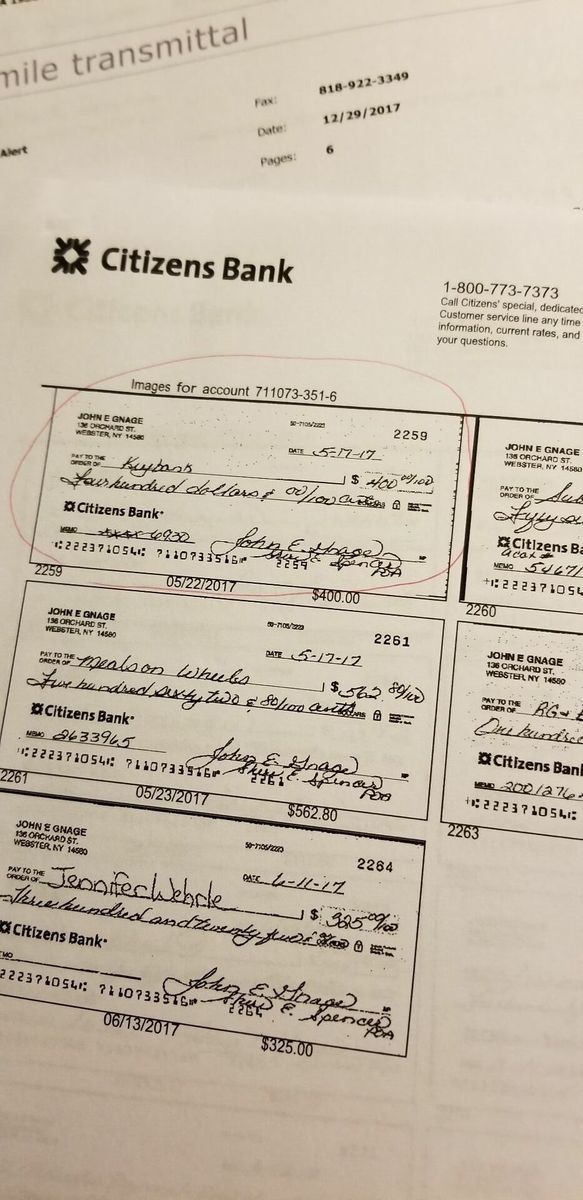 mile transmittal
Fax: 818-922-3349
Date: 12/29/2017
Alert
Pages: 6
Citizens Bank
1-800-773-7373
Call Citizens' special, dedicated
Customer service line any time
information, current rates, and
your questions.
Images for account 711073-351-6
JOHN E GNAGE
136 ORCHARD ST.
WEBSTER, NY 14580
50-7105/2223
2259
DATE 5-17-17
PAY TO THE
ORDER OF Keybank $ 400 00/100
Four hundred dollars & 00/100 cents
Citizens Bank
MEMO 6930 John E. Gnage
E. Spencer POA
2259
2259 05/22/2017 $400.00
JOHN E GNAGE
136 ORCHARD ST.
WEBSTER, NY 14580
PAY TO THE
ORDER OF
Citizens Ba
MEMO
2260
JOHN E GNAGE
136 ORCHARD ST.
WEBSTER, NY 14580
50-7105/2223
2261
DATE 5-17-17
PAY TO THE
ORDER OF Meals on Wheels $ 562 80/100
Five hundred sixty two & 80/100 cents
Citizens Bank
MEMO 2633965 John E. Gnage
E. Spencer POA
2261
2261 05/23/2017 $562.80
JOHN E GNAGE
136 ORCHARD ST.
WEBSTER, NY 14580
PAY TO THE
ORDER OF RG&
One hundred
Citizens Bank
MEMO 2001276
2263
JOHN E GNAGE
136 ORCHARD ST.
WEBSTER, NY 14580
50-7105/2223
2264
DATE 6-11-17
PAY TO THE
ORDER OF Jennifer Wehrle $ 325 00/100
Three hundred and twenty five
Citizens Bank
John E. Gnage
E. Spencer POA
2264
06/13/2017 $325.00